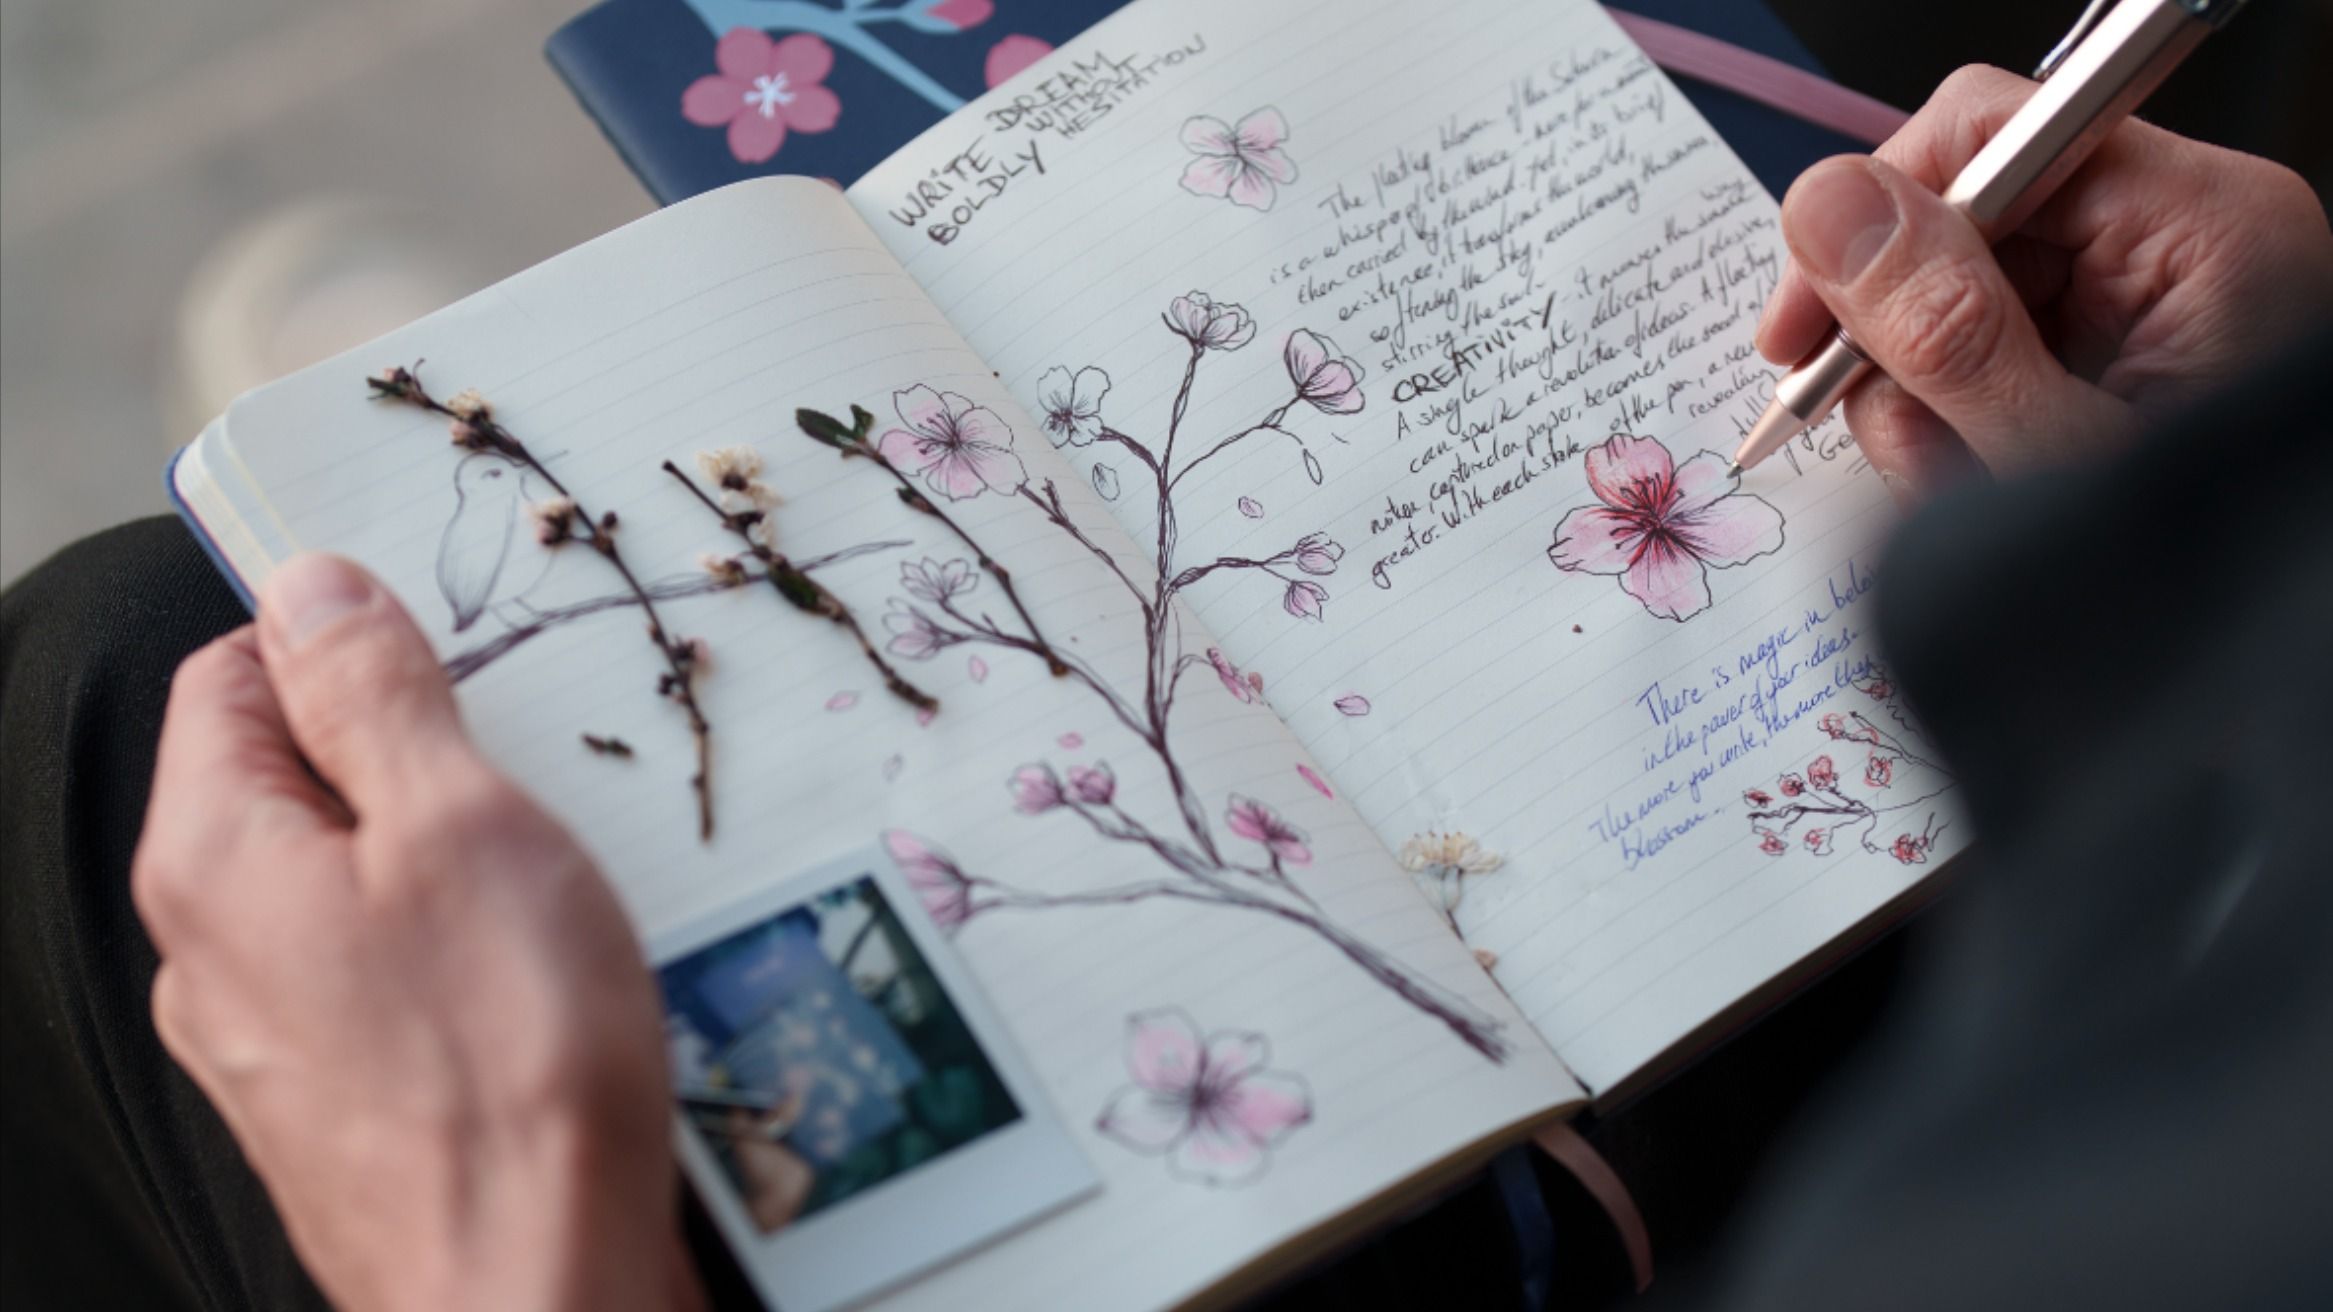 WRITE DREAM
BOLDLY WITHOUT
HESITATION
The fleeting bloom of the Sakura
is a whisper of existence - here for a moment
then carried by the wind. Yet, in its brief
existence, it transforms the world,
softening the sky, awakening the senses,
stirring the soul.
CREATIVITY - it moves the same way
A single thought, delicate and elusive,
can spark a revolution of ideas. A fleeting
notion, captured on paper, becomes the seed of
greater. With each stroke of the pen, a new
revealing
There is magic in
in the power of your ideas.
The more you write, the more they
blossom.